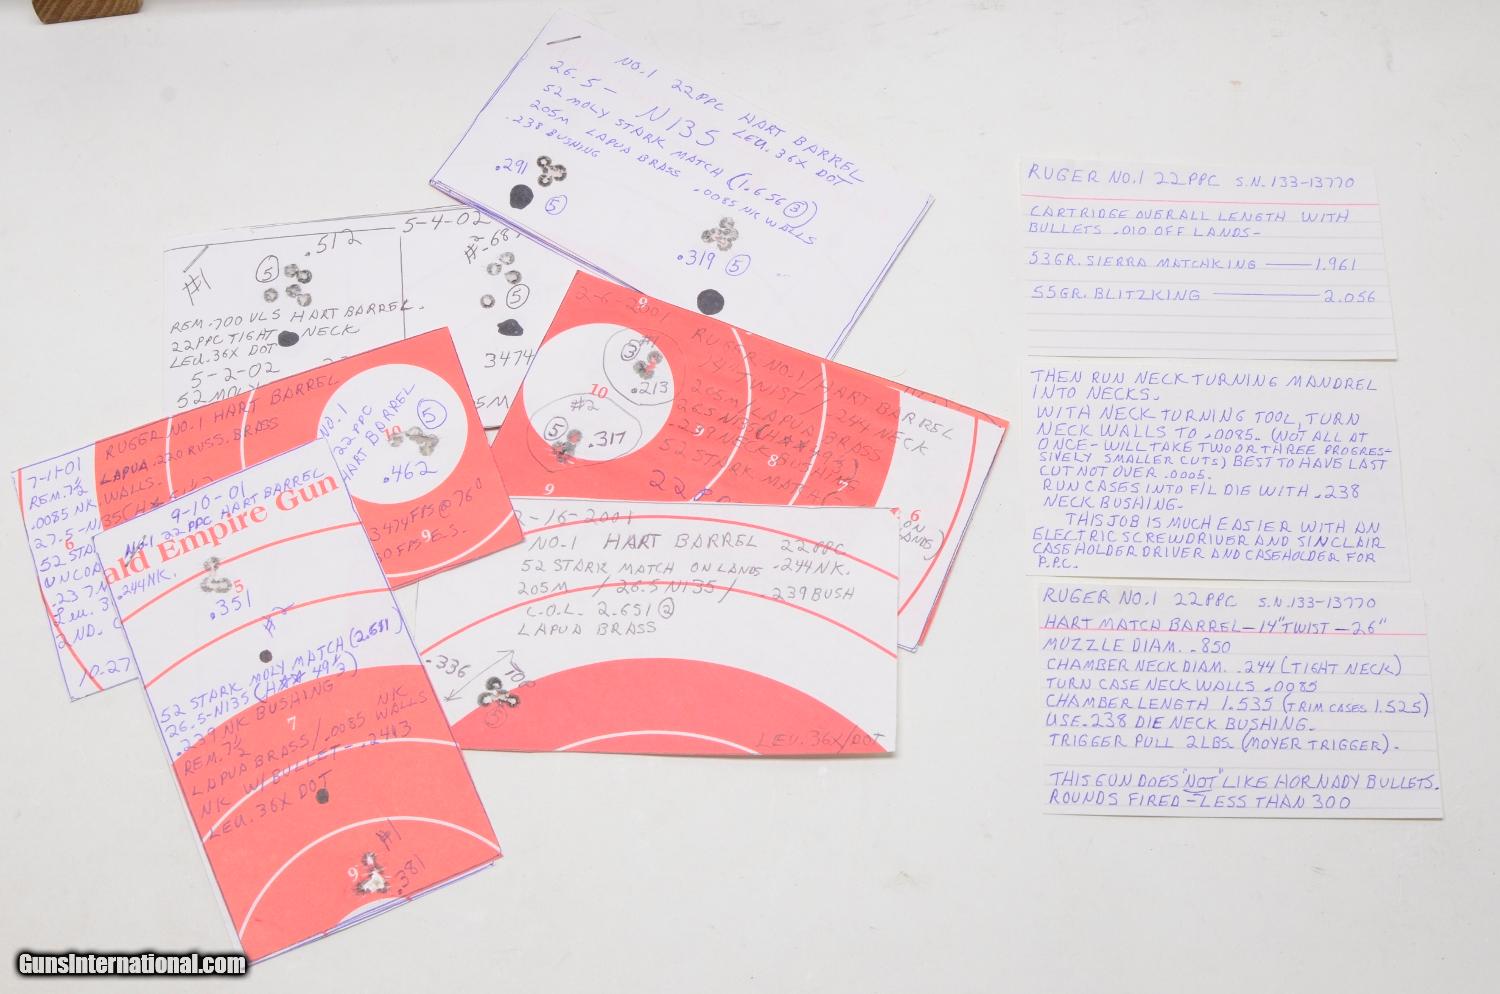 NO.1 22PPC HART BARREL
26.5- N135 LEU. 36X DOT
52 MOLY STARK MATCH (1.656 3)
205M LAPUA BRASS .0085 NK WALLS
.238 BUSHING
.291
5
.319 5
.512
#1 5
REM.700 VLS HART BARREL.
22PPC TIGHT NECK
LEU.36X DOT
5-2-02
52 MOLY
5-4-02
#2 .68
5
3474
5M
2-6-2001
9
RUGER NO.1/HART BARREL
14" TWIST/.244 NECK
205M LAPUA BRASS
26.5 N135
.239 NECK BUSHING
52 STARK MATCH
22
3 #1
.213
10
#2
5 .317
9
9
8
7
6
ON
LANDS)
7-11-01
RUGER NO.1 HART BARREL
REM.7½ LAPUA .220 RUSS. BRASS
.0085 NK WALLS.
27.5-N135
52 STAR
UNCOA
.237 N
LEU. 3
2ND.
10-27
6
NO.1
22PPC
HART BARREL
10
5
.462
3474 FPS @ 76°
50 FPS E.S.
9
9-10-01
NO.1 22PPC HART BARREL
ald Empire Gun
.244NK.
5
.351
#2
52 STARK MOLY MATCH (2.651)
26.5-N135 (H 49 ½ 3)
.239 NK BUSHING
7
REM.7½
LAPUA BRASS/.0085 NK WALLS
NK W/BULLET-.2413
LEU. 36X DOT
#1
9
.381
2-16-2001
NO.1 HART BARREL 22PPC
52 STARK MATCH ON LANDS .244NK.
205M / 26.5 N135 / .239 BUSH
C.O.L. 2.651 2
LAPUA BRASS
.336
100
5
LEU.36X/DOT
RUGER NO.1 22PPC S.N.133-13770
CARTRIDGE OVERALL LENGTH WITH
BULLETS .010 OFF LANDS-
53GR. SIERRA MATCHKING — 1.961
55GR. BLITZKING — 2.056
THEN RUN NECK TURNING MANDREL
INTO NECKS.
WITH NECK TURNING TOOL, TURN
NECK WALLS TO .0085. (NOT ALL AT
ONCE- WILL TAKE TWO OR THREE PROGRES-
SIVELY SMALLER CUTS) BEST TO HAVE LAST
CUT NOT OVER .0005.
RUN CASES INTO F/L DIE WITH .238
NECK BUSHING.
THIS JOB IS MUCH EASIER WITH AN
ELECTRIC SCREWDRIVER AND SINCLAIR
CASE HOLDER DRIVER AND CASEHOLDER FOR
P.P.C.
RUGER NO.1 22PPC S.N.133-13770
HART MATCH BARREL-14"TWIST-26"
MUZZLE DIAM. .850
CHAMBER NECK DIAM. .244 (TIGHT NECK)
TURN CASE NECK WALLS .0085
CHAMBER LENGTH 1.535 (TRIM CASES 1.525)
USE .238 DIE NECK BUSHING.
TRIGGER PULL 2LBS. (MOYER TRIGGER).
THIS GUN DOES "NOT" LIKE HORNADY BULLETS.
ROUNDS FIRED - LESS THAN 300
GunsInternational.com